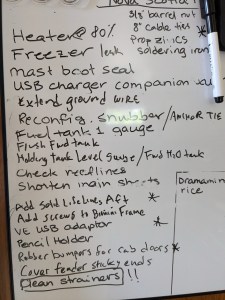 Nova Scotia
5/8" barrel nut
Heater @ 80%
8" cable ties
Prop zincs
Freezer leak
soldering iron
mast boot seal
USB charger companion
Extend ground wire
Reconfig. Snubber/Anchor TIE
Fwd tank 1 gauge
Flush Fwd tank
Holding Tank Level Guage/Fwd H2O tank
Check reeflines
Shorten main sheets
Add solid Lifelines Aft
Add screws to Bimini Frame
VE USB adaptor
Pencil Holder
Rubber bumpers for cab doors
Cover fender sticky ends
Clean strainers !!
Dramamine
rice